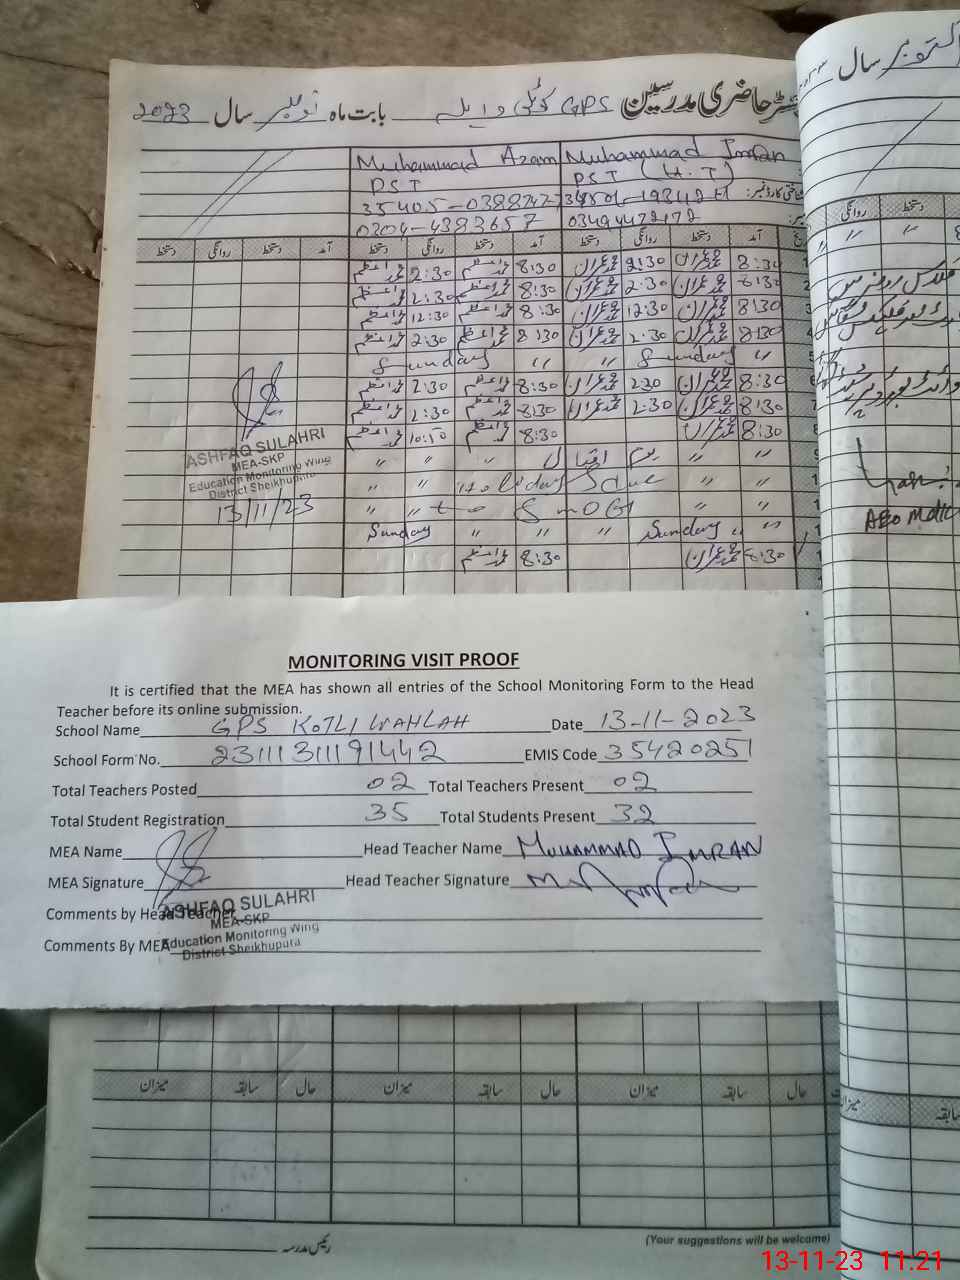 رجسٹر حاضری مدرسین GPS کوٹلی واہلہ بابت ماہ نومبر سال 2023
Muhammad Azam Muhammad Imran
PST PST (H.T)
0304-4383657 03494472172
آمد دستخط روانگی دستخط آمد دستخط روانگی دستخط آمد دستخط روانگی دستخط
8:30 محمد عمران 2:30 محمد عمران 8:30 محمد اعظم 2:30 محمد اعظم
8:30 محمد عمران 2:30 محمد عمران 8:30 محمد اعظم 2:30 محمد اعظم
8:30 محمد عمران 12:30 محمد عمران 8:30 محمد اعظم 12:30 محمد اعظم
8:30 محمد عمران 2:30 محمد عمران 8:30 محمد اعظم 2:30 محمد اعظم
Sunday " " Sunday "
8:30 محمد عمران 2:30 محمد عمران 8:30 محمد اعظم 2:30 محمد اعظم
8:30 محمد عمران 2:30 محمد عمران 8:30 محمد اعظم 2:30 محمد اعظم
8:30 محمد عمران 8:30 محمد اعظم 10:10 محمد اعظم
" " یوم اقبال " " "
" " Holiday Due " "
" " to SmOG " "
Sunday " " " Sunday " "
8:30 محمد عمران 8:30 محمد اعظم
ASHFAQ SULAHRI
MEA-SKP
Education Monitoring Wing
District Sheikhupura
13/11/23
اکتوبر سال
روانگی دستخط
AEO
MONITORING VISIT PROOF
It is certified that the MEA has shown all entries of the School Monitoring Form to the Head
Teacher before its online submission.
School Name GPS KOTLI WAHLAH Date 13-11-2023
School Form No. 23111311191442 EMIS Code 35420251
Total Teachers Posted 02 Total Teachers Present 02
Total Student Registration 35 Total Students Present 32
MEA Name Head Teacher Name MUHAMMAD IMRAN
MEA Signature Head Teacher Signature
Comments by Head Teacher
Comments By MEA
ASHFAQ SULAHRI
MEA-SKP
Education Monitoring Wing
District Sheikhupura
حال سابقہ میزان حال سابقہ میزان حال سابقہ میزان
میزان سابقہ
رئیس مدرسہ
(Your suggestions will be welcome)
13-11-23 11.21